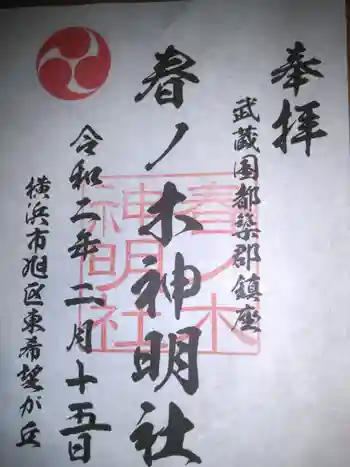 奉拝
武蔵国都築郡鎮座
春ノ木神明社
令和二年二月十五日
横浜市旭区東希望が丘
春ノ木
神明社